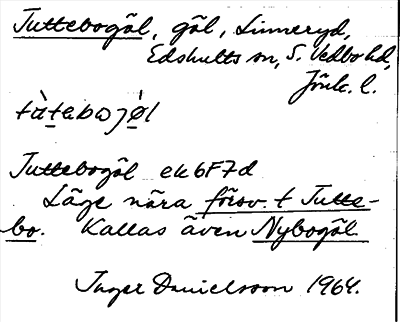 Juttebogöl, göl, Linneryd,
Edshults sn, S. Vedbo hd,
Jönk. l.
Juttebogöl ek 6F7d
Läge nära försv. t Jutte-
bo. Kallas även Nybogöl.
Inger Danielsson 1964.